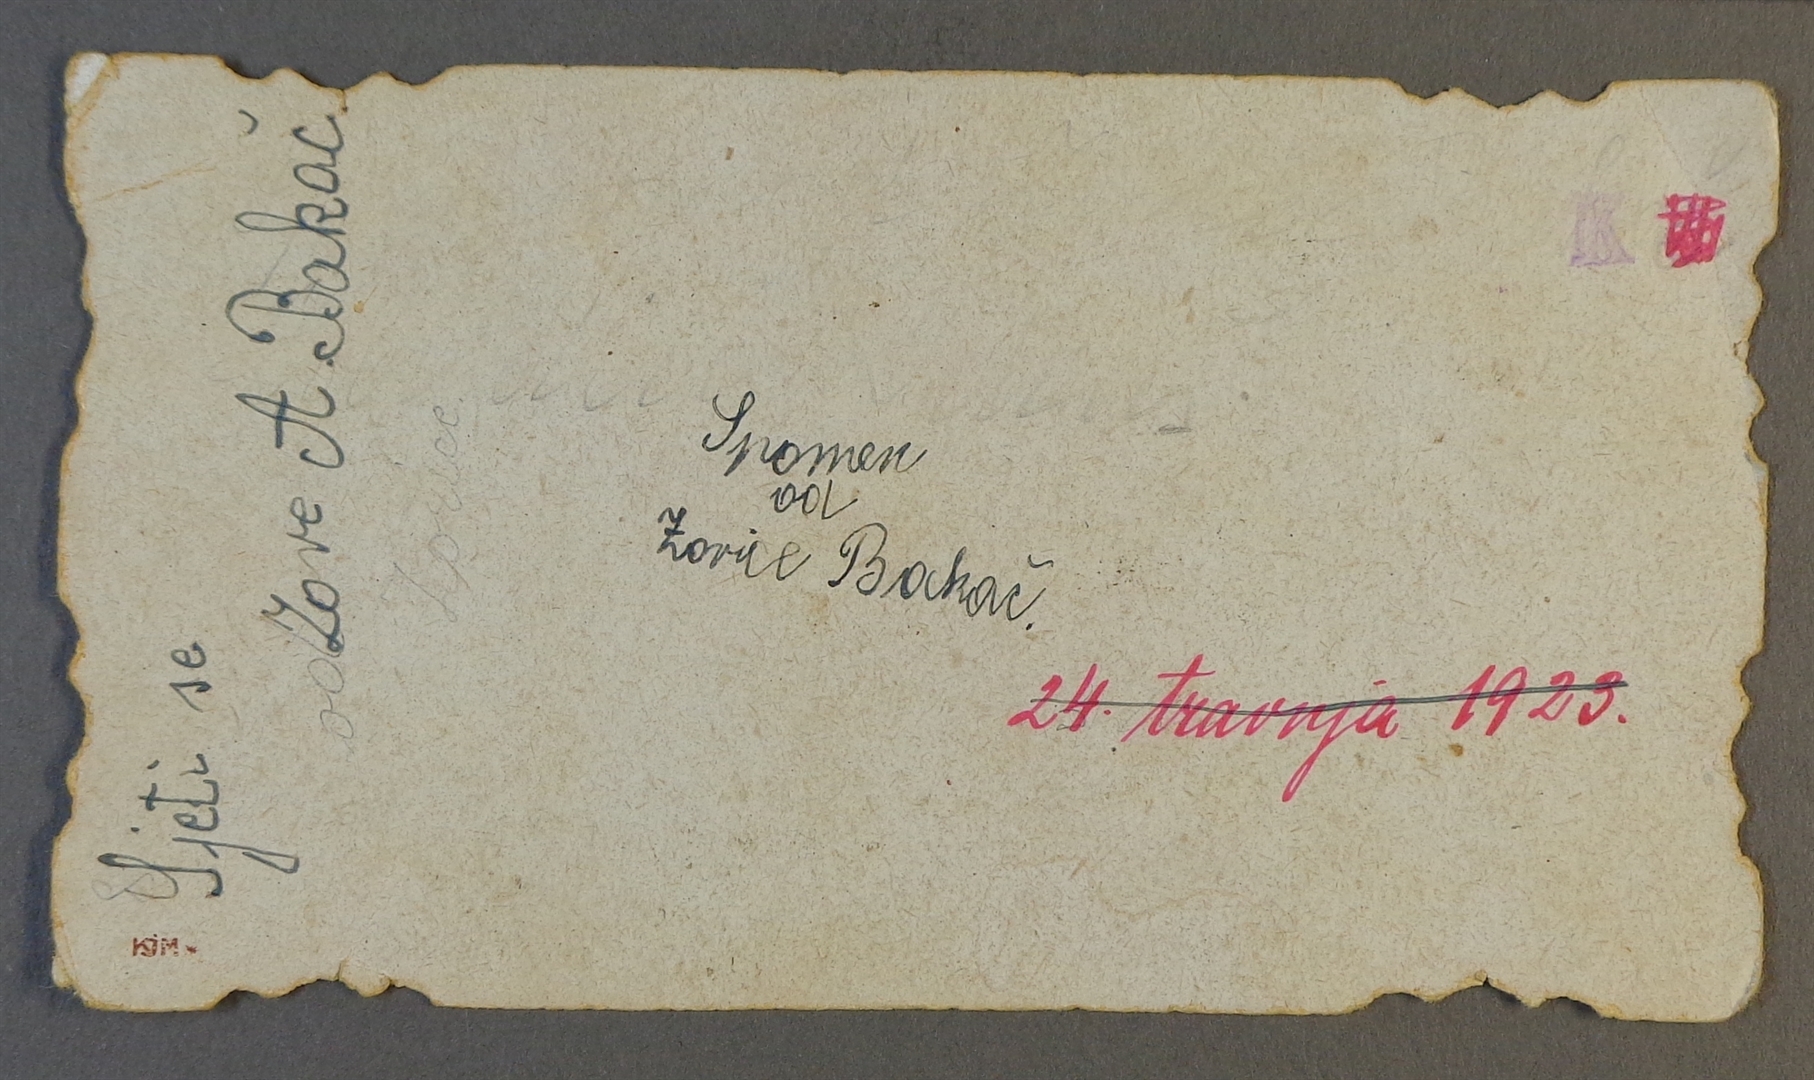 Sjeti se
od Zore A. Bakač.
Zorice.
Spomen
od
Zorice Bakač.
24. travnja 1923.
K